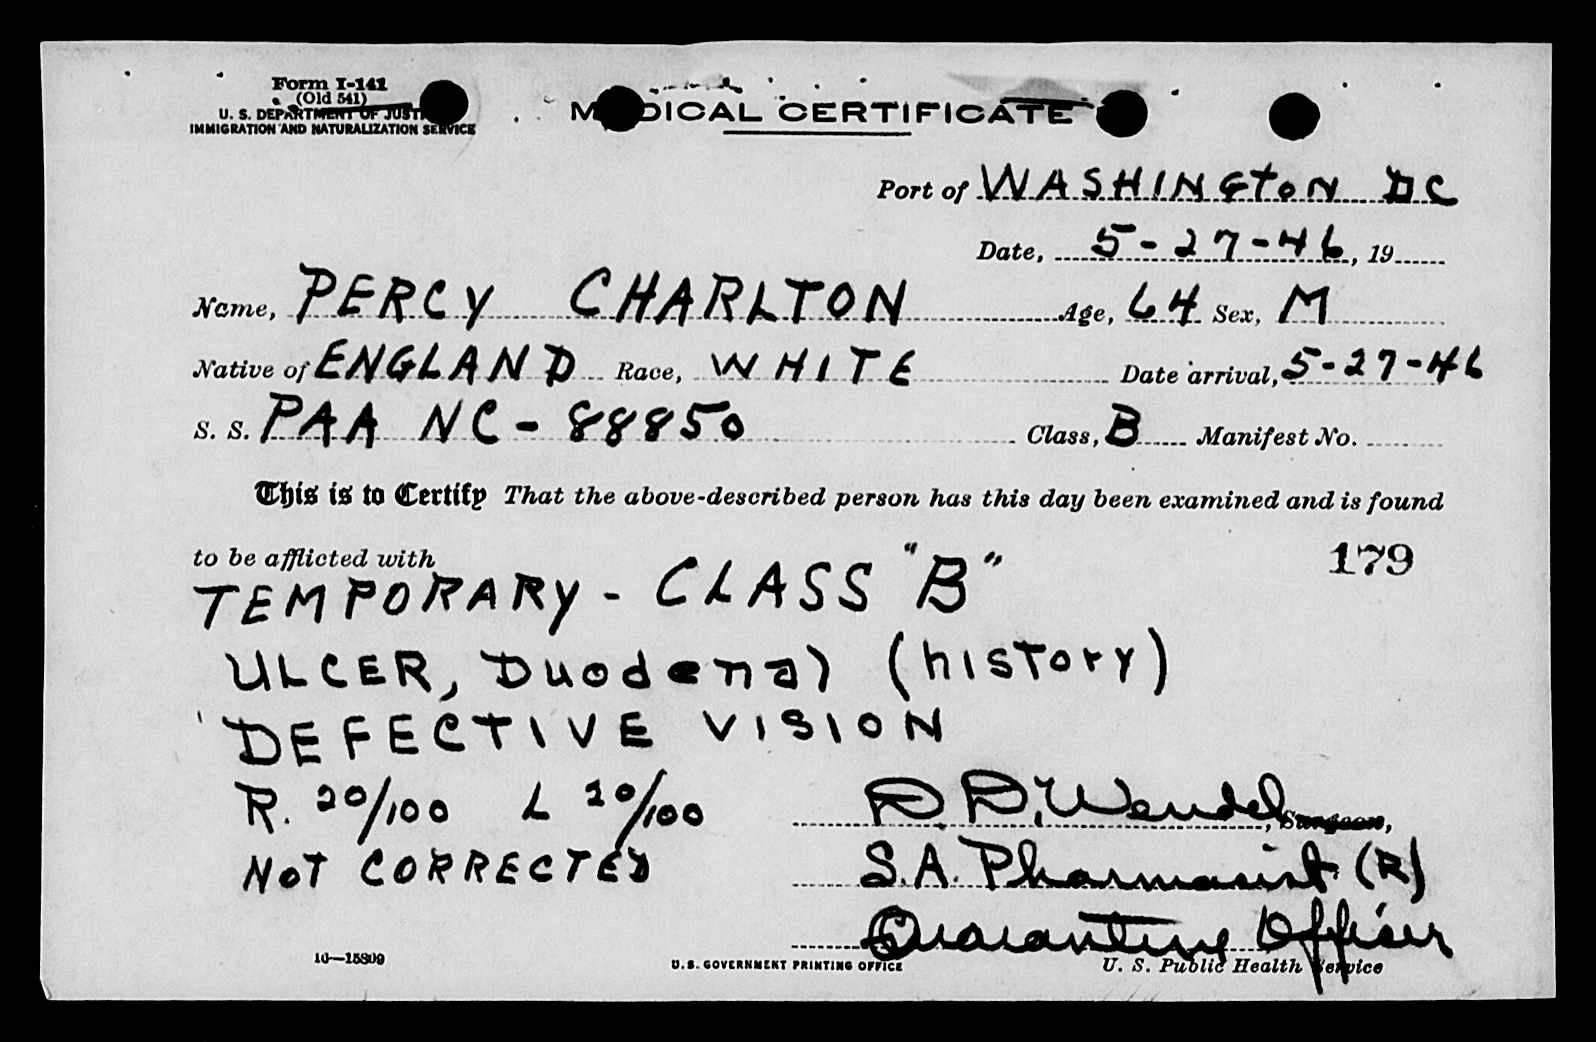 Form I-141
(Old 541)
U. S. DEPARTMENT OF JUSTICE
IMMIGRATION AND NATURALIZATION SERVICE
MEDICAL CERTIFICATE
Port of WASHINGTON DC
Date, 5-27-46, 19
Name, PERCY CHARLTON Age, 64 Sex, M
Native of ENGLAND Race, WHITE Date arrival, 5-27-46
S. S. PAA NC-88850 Class, B Manifest No.
This is to Certify That the above-described person has this day been examined and is found
to be afflicted with 179
TEMPORARY - CLASS "B"
ULCER, Duodenal (history)
DEFECTIVE VISION
R. 20/100 L 20/100
NOT CORRECTED
R. D. Wendel, Surgeon,
S.A. Pharmacist (R)
Quarantine Officer
U. S. Public Health Service
10—15809 U.S. GOVERNMENT PRINTING OFFICE